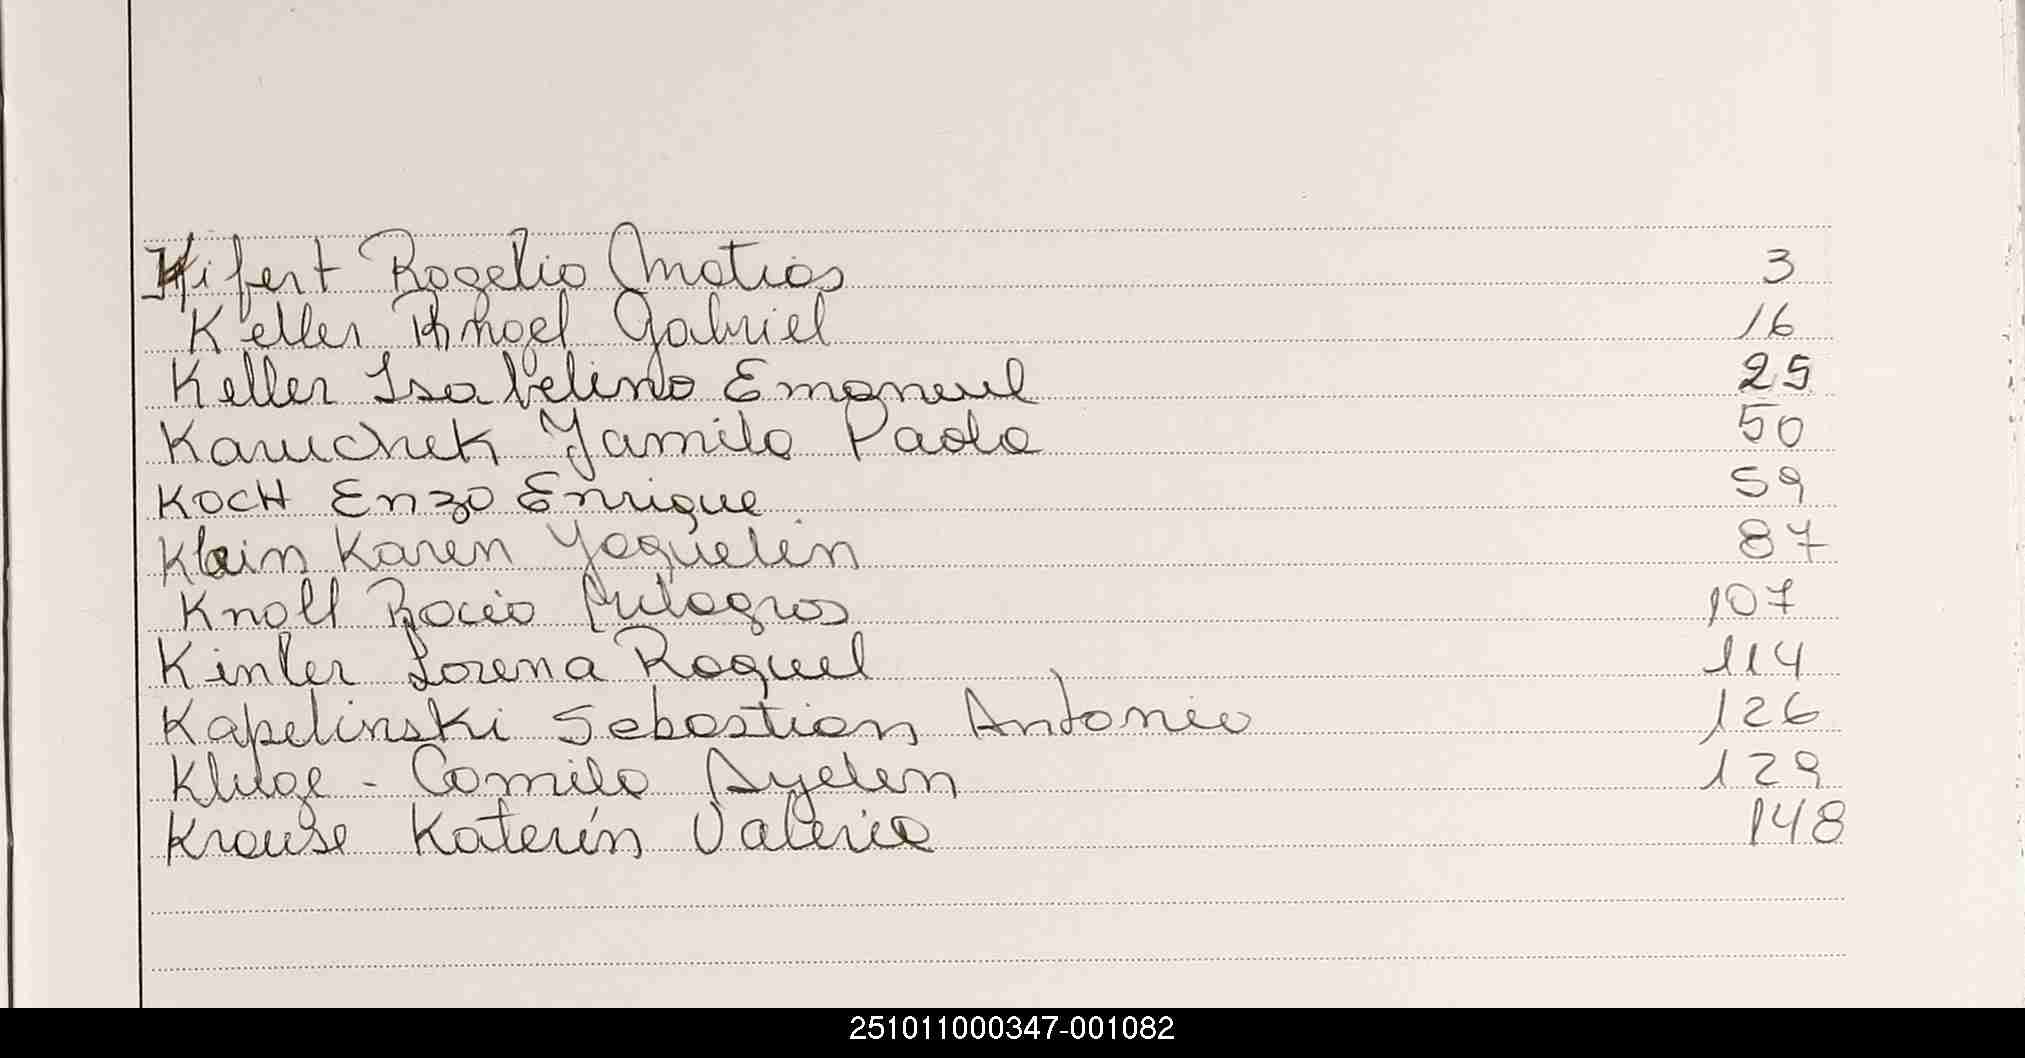 Kifert Rogelio Matias 3
Keller Ismael Gabriel 16
Keller Isabelino Emanuel 25
Kauchek Yamila Paola 50
KOCH Enzo Enrique 59
Klein Karen Yaquelin 87
Knoll Rocio Milagros 107
Kinler Lorena Raquel 114
Kapelinski Sebastian Antonio 126
Kluge - Camila Ayelen 129
Krause Katerín Valeria 148
251011000347-001082